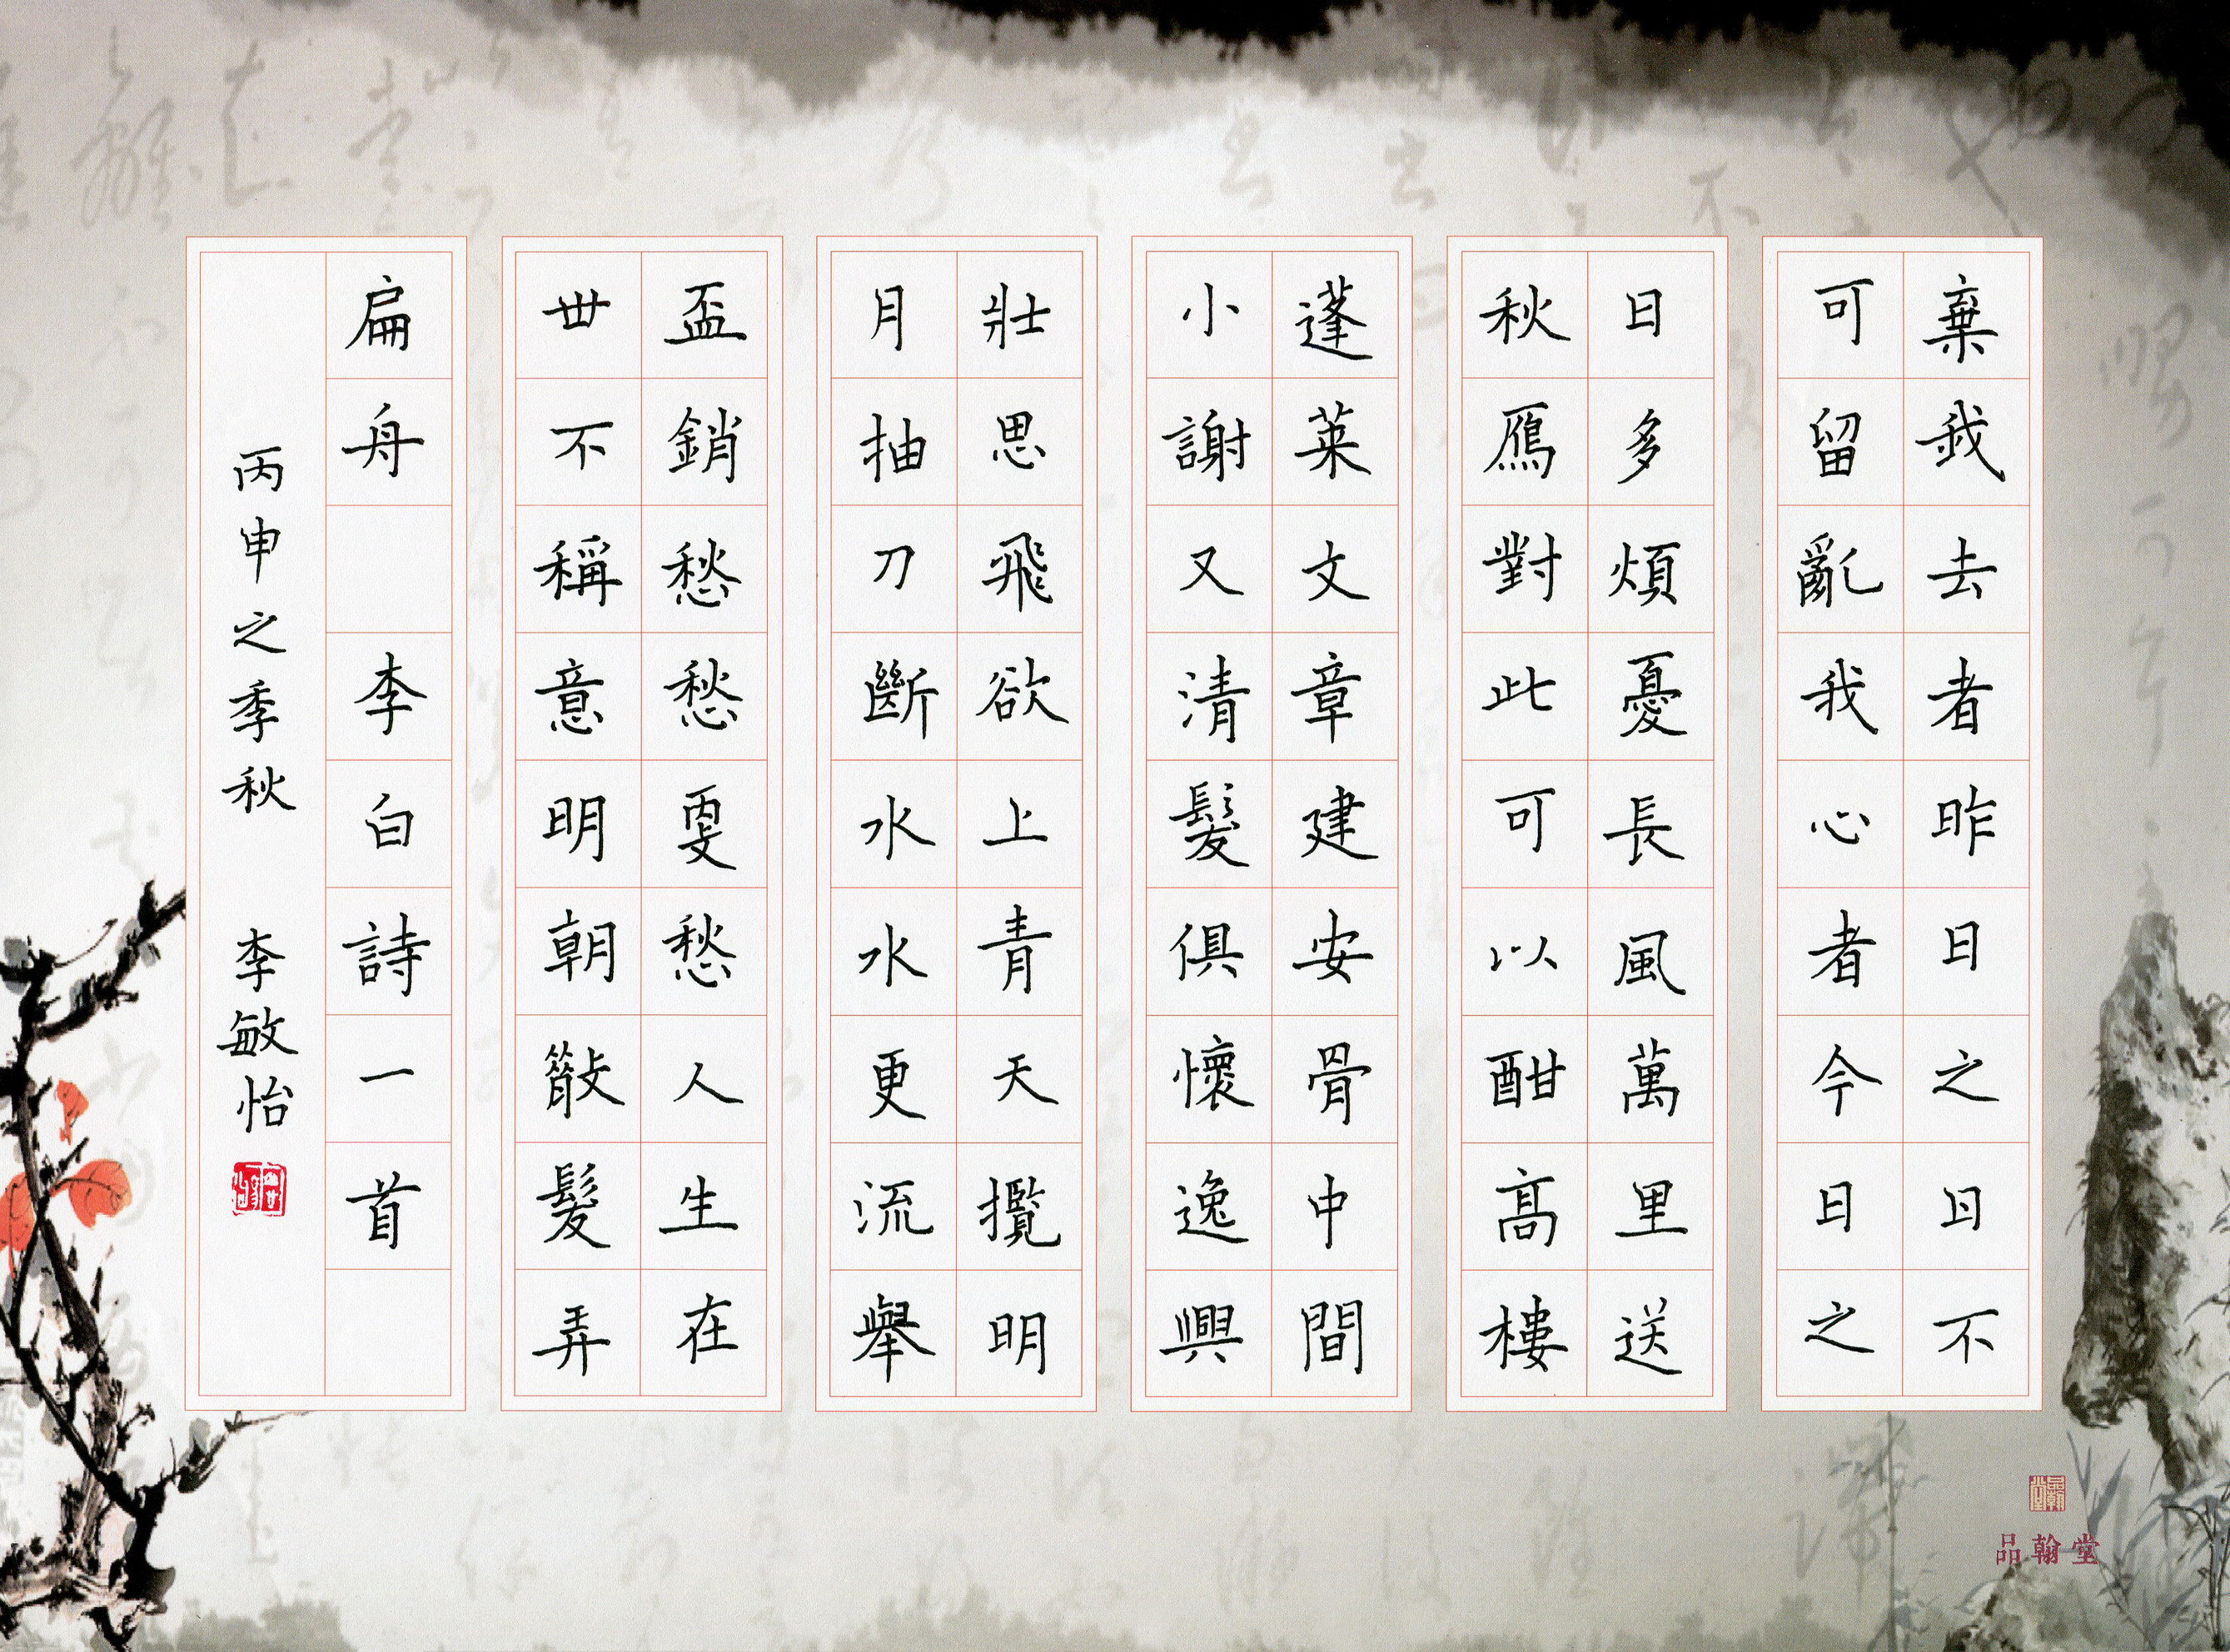 棄我去者昨日之日不
可留亂我心者今日之
日多煩憂長風萬里送
秋鴈對此可以酣高樓
蓬萊文章建安骨中間
小謝又清髮俱懷逸興
壯思飛欲上青天攬明
月抽刀斷水水更流舉
盃銷愁愁㪅愁人生在
世不稱意明朝散髮弄
扁舟 李白詩一首
丙申之季秋 李敏怡
品翰堂